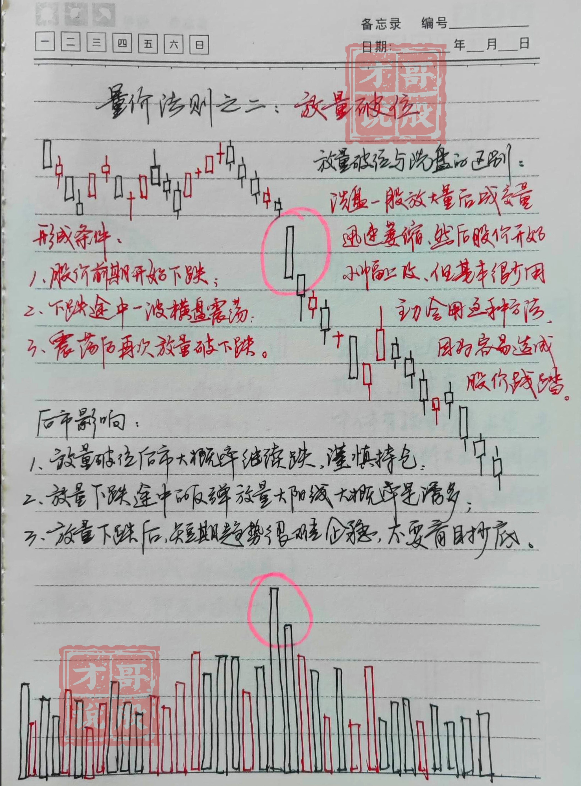 备忘录 编号
一 二 三 四 五 六 日
日期: 年 月 日
量价法则之二：放量破位
放量破位与洗盘的区别：
洗盘一般放大量后成交量
迅速萎缩，然后股价开始
小幅上攻，但基本很少用
主力会用这种方法，
因为容易造成
股价践踏。
形成条件：
1、股价前期开始下跌；
2、下跌途中一波横盘震荡；
3、震荡后再次放量破下跌。
后市影响：
1、放量破位后市大概率继续跌，谨慎持仓；
2、放量下跌途中的反弹放量大阳线大概率是诱多；
3、放量下跌后，短期趋势很难企稳，不要盲目抄底。
才哥
说戒
才哥